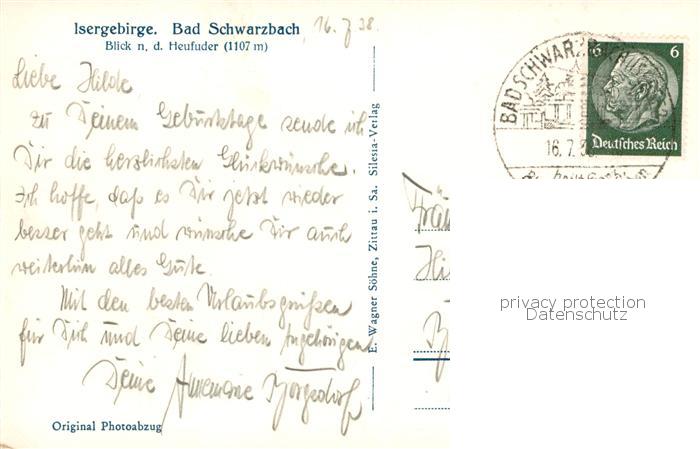 Isergebirge. Bad Schwarzbach
Blick n. d. Heufuder (1107 m)
16. 7. 38.
Liebe Hilde,
zu Deinem Geburtstage sende ich
Dir die herzlichsten Glückwünsche.
Ich hoffe, daß es Dir jetzt wieder
besser geht und wünsche Dir auch
weiterhin alles Gute.
Mit den besten Urlaubsgrüßen
für Dich und Deine lieben Angehörigen
Deine Annemarie
Original Photoabzug
E. Wagner Söhne, Zittau i. Sa. Silesia-Verlag
BAD SCHWARZB
16.7.38
6 6
Deutsches Reich
Fräu
Hi
privacy protection
Datenschutz